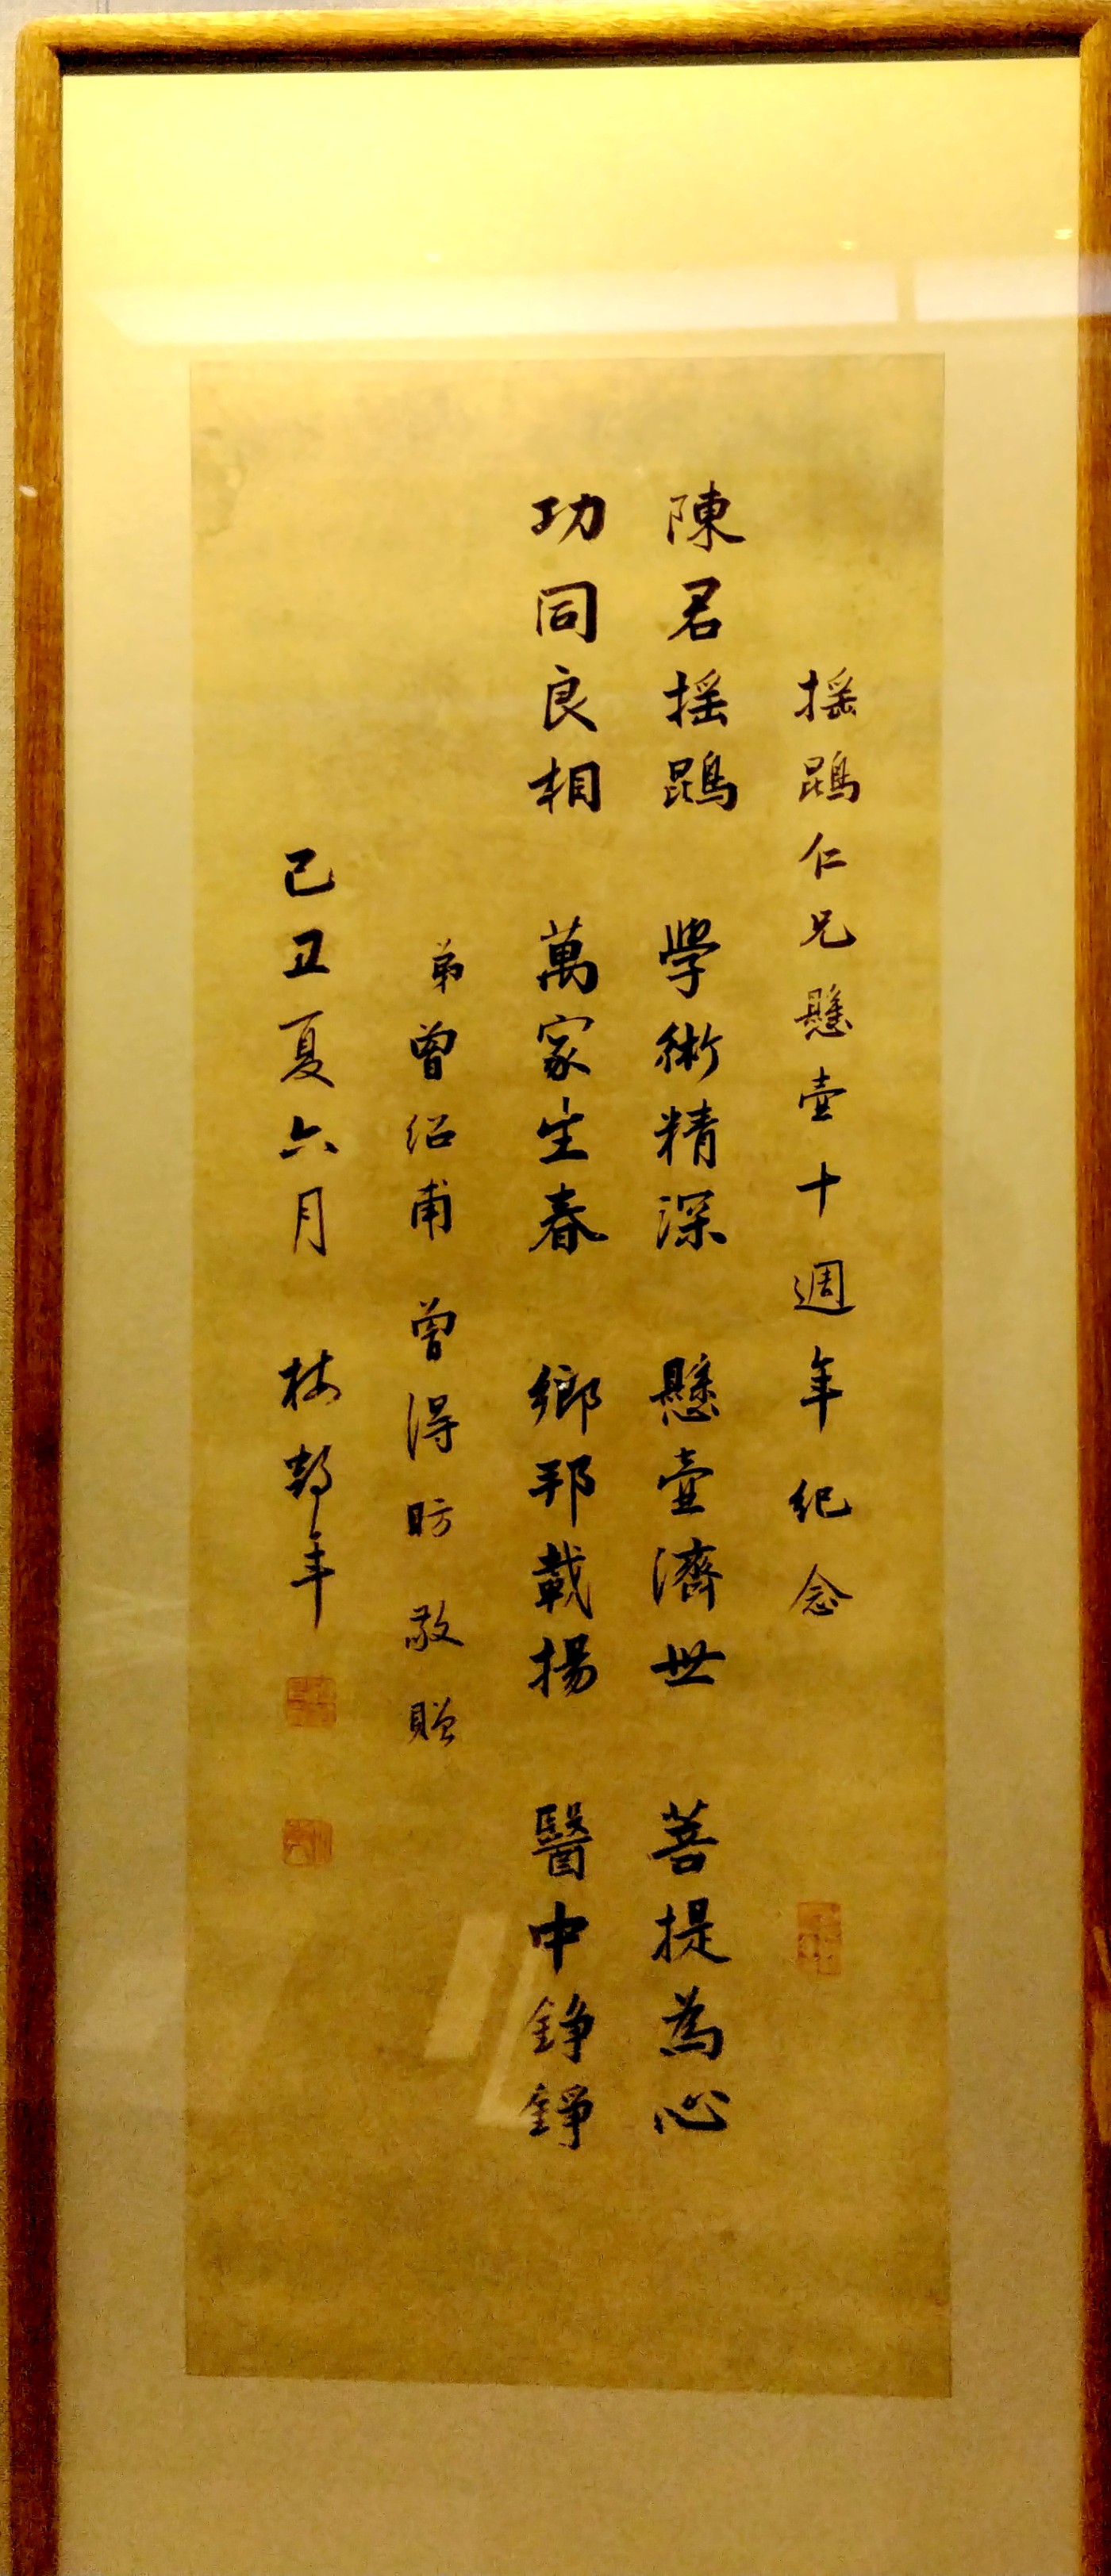 搖鵾仁兄懸壺十週年紀念
陳君搖鵾 學術精深 懸壺濟世 菩提為心
功同良相 萬家生春 鄉邦載揚 醫中錚錚
弟曾紹甫 曾得昉敬贈
己丑夏六月 年